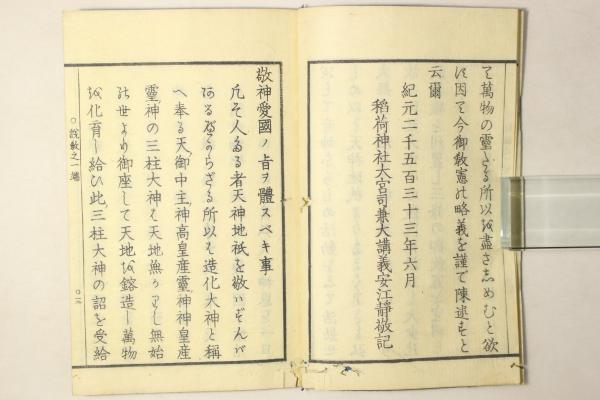 て萬物の靈たる所以を盡さしめむと欲
す因て今御敎憲の略義を謹て陳述すと
云爾
紀元二千五百三十三年六月
稻荷神社大宮司兼大講義安江靜敬記
敬神愛國ノ旨ヲ體スベキ事
凡そ人たる者天神地祇を敬ハずんバ
あるべからざる所以は造化大神と稱
へ奉る天御中主神高皇産靈神神皇産
靈神の三柱大神は天地無かりし無始
の世より御座して天地を鎔造し萬物
を化育し給ひ此三柱大神の詔を受給
○說敎之一端